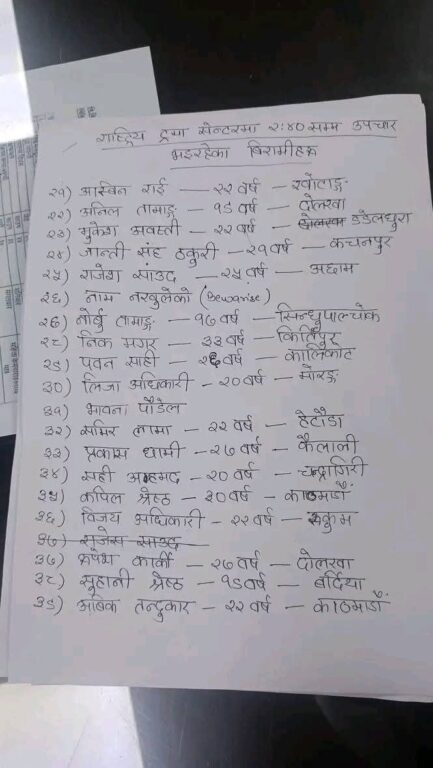 राष्ट्रिय ट्रमा सेन्टरमा २:४० सम्म उपचार
भइरहेका बिरामीहरू
२१) आस्बिन राई — २२ वर्ष — खोटाङ्ग
२२) अनिल तामाङ्ग — १९ वर्ष — दोलखा
२३) मुकेश अवस्ती — २२ वर्ष — दोलखा डडेलधुरा
२४) जान्ती संह ठकुरी — २१ वर्ष — कंचनपुर
२५) राजेश साउद — २५ वर्ष — अछाम
२६) नाम नखुलेको (Bewarise)
२७) नोर्बु तामाङ्ग — १७ वर्ष — सिन्धुपाल्चोक
२८) निक मगर — ३३ वर्ष — किर्तिपुर
२९) पवन साही — २६ वर्ष — कालिकोट
३०) लिजा अधिकारी — २० वर्ष — मोरङ्ग
३१) भावना पौडेल
३२) समिर लामा — २२ वर्ष — हेटौडा
३३) प्रकास धामी — २७ वर्ष — कैलाली
३४) सही अहमद — २० वर्ष — चन्द्रागिरी
३५) कपिल श्रेष्ठ — ३० वर्ष — काठमाडौं
३६) विजय अधिकारी — २२ वर्ष — रुकुम
३७) सृजेस साउद
३७) ऋषभ कार्की — २७ वर्ष — दोलखा
३८) सूहानी श्रेष्ठ — १९ वर्ष — बर्दिया
३९) अबिक तन्दुकार — २२ वर्ष — काठमाडौं